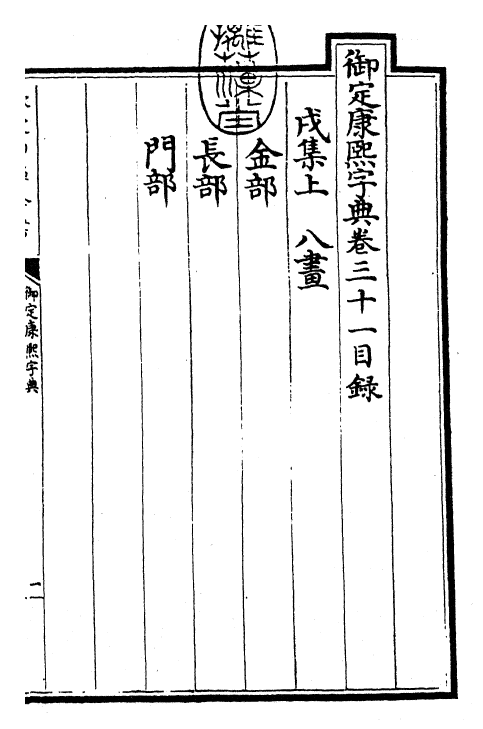 御定康熙字典卷三十一目録
戌集上 八畫
金部
長部
門部
御定康熙字典